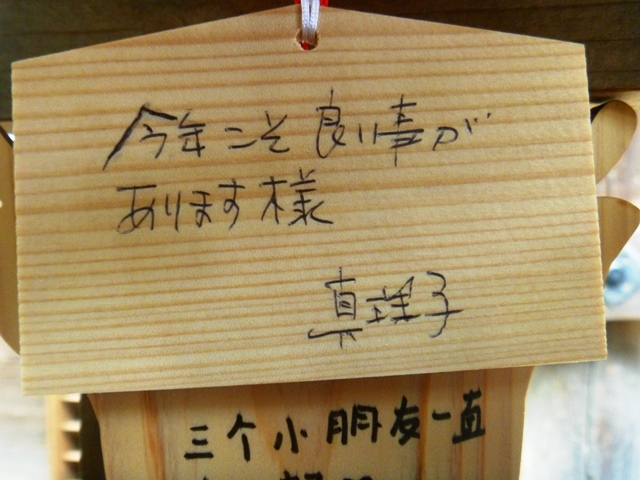 今年こそ良い事が
あります様
真理子
三个小朋友一直